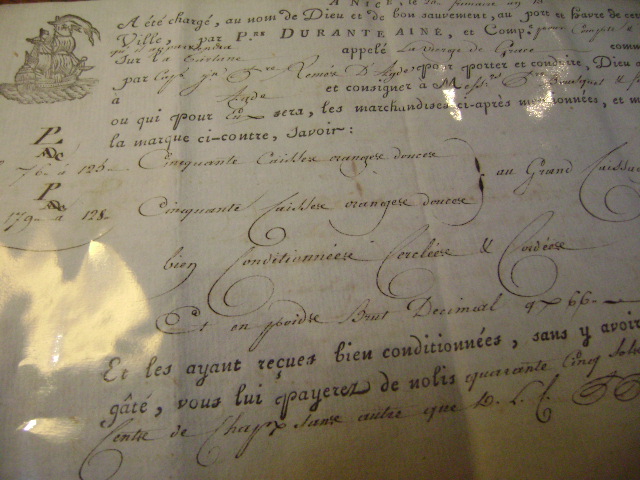 A NICE, le
A été chargé, au nom de Dieu et de bon sauvement, au port et havre de cette
Ville, par P.re DURANTE AINÉ, et Comp.e pour Compte
sur la Tartane appelé La vierge de Grace
par Cap.e Romés D'Agde pour porter et conduire, Dieu
à Agde et consigner à Mess.rs
ou qui pour Eux sera, les marchandises ci-après mentionnées, et m
la marque ci-contre, savoir :
P
ADC
76 à 125 Cinquante Caisses oranges douces
au Grand Caissa
P
179 à 128 Cinquante Caisses oranges douces
bien Conditionnées Cerclées & Cordées
Et en poids Brut Decimal
Et les ayant reçues bien conditionnées, sans y avoir
gâté, vous lui payerez de nolis quarante Cinq Sols
Cente de Chap.x sans autre que